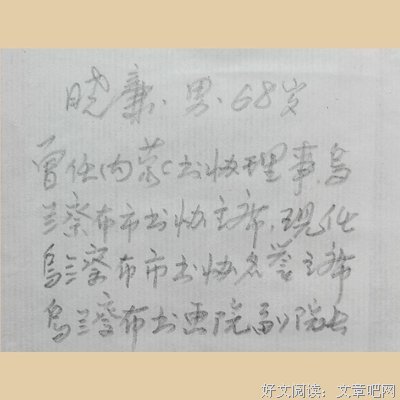 晓廉、男、68岁
曾任内蒙书协理事、乌
兰察布市书协主席,现任
乌兰察布市书协名誉主席
乌兰察布书画院副院长
好文阅读:文章吧网